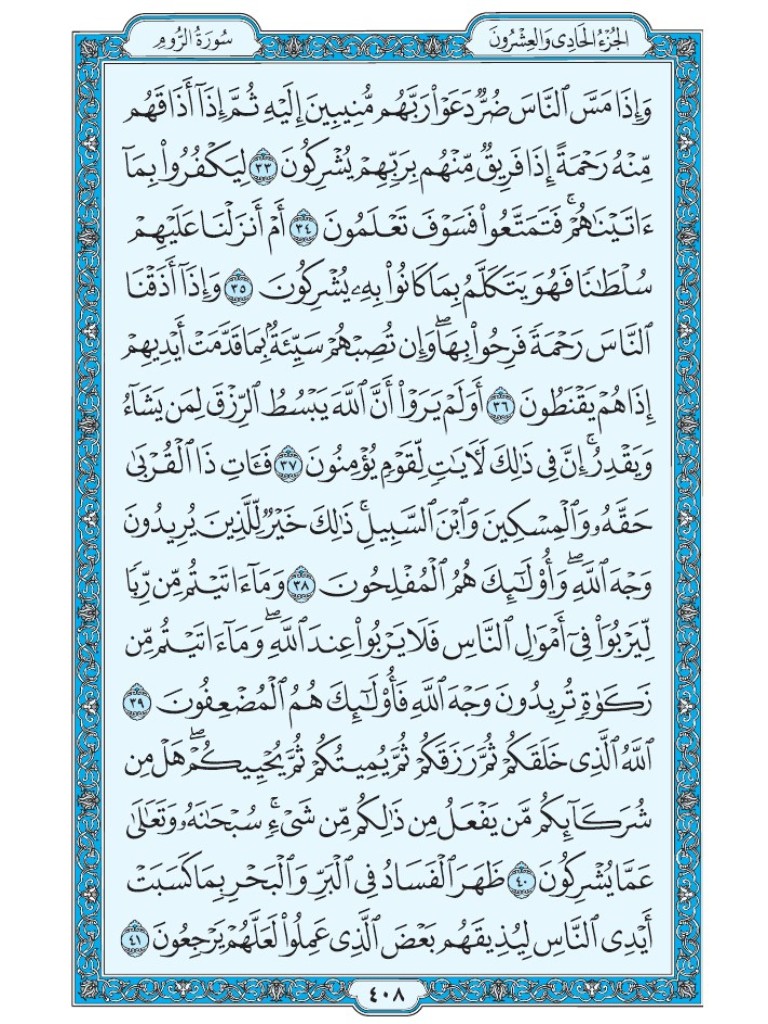 الجُزْءُ الحَادِى وَالعِشْرُونَ
سُورَةُ الرُّومِ
وَإِذَا مَسَّ ٱلنَّاسَ ضُرٌّ دَعَوْاْ رَبَّهُم مُّنِيبِينَ إِلَيْهِ ثُمَّ إِذَآ أَذَاقَهُم
مِّنْهُ رَحْمَةً إِذَا فَرِيقٌ مِّنْهُم بِرَبِّهِمْ يُشْرِكُونَ ٣٣ لِيَكْفُرُواْ بِمَآ
ءَاتَيْنَٰهُمْۚ فَتَمَتَّعُواْ فَسَوْفَ تَعْلَمُونَ ٣٤ أَمْ أَنزَلْنَا عَلَيْهِمْ
سُلْطَٰنًا فَهُوَ يَتَكَلَّمُ بِمَا كَانُواْ بِهِۦ يُشْرِكُونَ ٣٥ وَإِذَآ أَذَقْنَا
ٱلنَّاسَ رَحْمَةً فَرِحُواْ بِهَاۖ وَإِن تُصِبْهُمْ سَيِّئَةٌۢ بِمَا قَدَّمَتْ أَيْدِيهِمْ
إِذَا هُمْ يَقْنَطُونَ ٣٦ أَوَلَمْ يَرَوْاْ أَنَّ ٱللَّهَ يَبْسُطُ ٱلرِّزْقَ لِمَن يَشَآءُ
وَيَقْدِرُۚ إِنَّ فِى ذَٰلِكَ لَأٓيَٰتٍ لِّقَوْمٍ يُؤْمِنُونَ ٣٧ فَـَٔاتِ ذَا ٱلْقُرْبَىٰ
حَقَّهُۥ وَٱلْمِسْكِينَ وَٱبْنَ ٱلسَّبِيلِۚ ذَٰلِكَ خَيْرٌ لِّلَّذِينَ يُرِيدُونَ
وَجْهَ ٱللَّهِۖ وَأُوْلَٰٓئِكَ هُمُ ٱلْمُفْلِحُونَ ٣٨ وَمَآ ءَاتَيْتُم مِّن رِّبًا
لِّيَرْبُوَاْ فِىٓ أَمْوَٰلِ ٱلنَّاسِ فَلَا يَرْبُواْ عِندَ ٱللَّهِۖ وَمَآ ءَاتَيْتُم مِّن
زَكَوٰةٍ تُرِيدُونَ وَجْهَ ٱللَّهِ فَأُوْلَٰٓئِكَ هُمُ ٱلْمُضْعِفُونَ ٣٩
ٱللَّهُ ٱلَّذِى خَلَقَكُمْ ثُمَّ رَزَقَكُمْ ثُمَّ يُمِيتُكُمْ ثُمَّ يُحْيِيكُمْۖ هَلْ مِن
شُرَكَآئِكُم مَّن يَفْعَلُ مِن ذَٰلِكُم مِّن شَىْءٍۚ سُبْحَٰنَهُۥ وَتَعَٰلَىٰ
عَمَّا يُشْرِكُونَ ٤٠ ظَهَرَ ٱلْفَسَادُ فِى ٱلْبَرِّ وَٱلْبَحْرِ بِمَا كَسَبَتْ
أَيْدِى ٱلنَّاسِ لِيُذِيقَهُم بَعْضَ ٱلَّذِى عَمِلُواْ لَعَلَّهُمْ يَرْجِعُونَ ٤١
٤٠٨